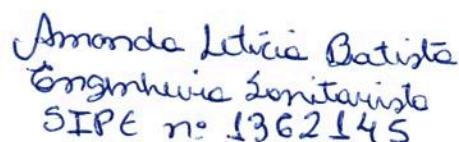 Amanda Letícia Batista
Engenheira Sanitarista
SIPE nº 1362145